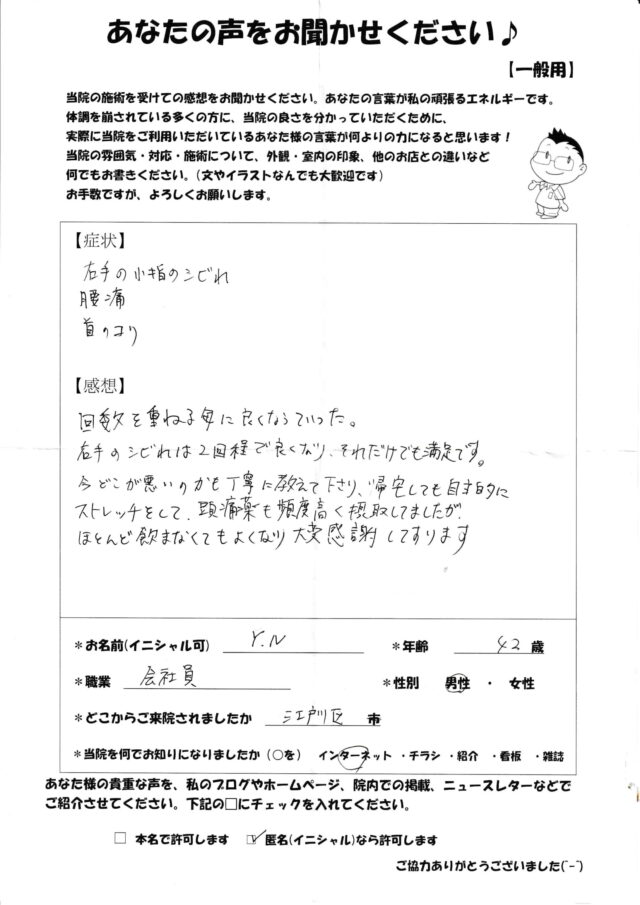 あなたの声をお聞かせください♪
【一般用】
当院の施術を受けての感想をお聞かせください。あなたの言葉が私の頑張るエネルギーです。
体調を崩されている多くの方に、当院の良さを分かっていただくために、
実際に当院をご利用いただいているあなた様の言葉が何よりの力になると思います！
当院の雰囲気・対応・施術について、外観・室内の印象、他のお店との違いなど
何でもお書きください。（文やイラストなんでも大歓迎です）
お手数ですが、よろしくお願いします。
【症状】
右手の小指のシビれ
腰痛
首のコリ
【感想】
回数を重ねる毎に良くなっていった。
右手のシビれは2回程で良くなり、それだけでも満足です。
今どこが悪いのかも丁寧に教えて下さり、帰宅しても自主的に
ストレッチをして、頭痛薬も頻度高く摂取してましたが
ほとんど飲まなくてもよくなり大変感謝しております
＊お名前(イニシャル可) Y.N ＊年齢 42 歳
＊職業 会社員 ＊性別 男性 ・ 女性
＊どこからご来院されましたか 江戸川区 市
＊当院を何でお知りになりましたか（○を） インターネット ・チラシ ・紹介 ・看板 ・雑誌
あなた様の貴重な声を、私のブログやホームページ、院内での掲載、ニュースレターなどで
ご紹介させてください。下記の□にチェックを入れてください。
□ 本名で許可します ☑ 匿名(イニシャル)なら許可します
ご協力ありがとうございました(^-^)